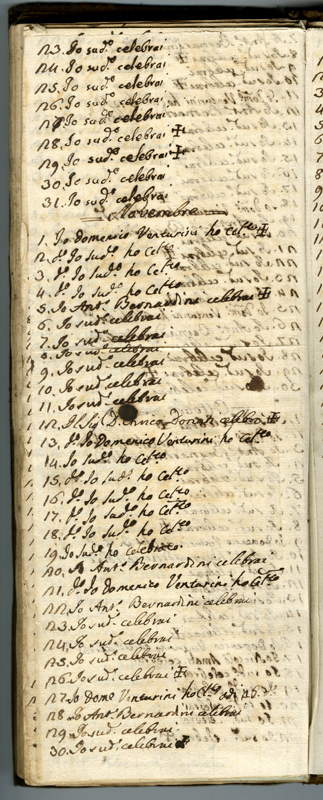 23. Io sud.º celebrai
24. Io sud.º celebrai
25. Io sud.º celebrai
26. Io sud.º celebrai
27. Io sud.º celebrai
28. Io sud.º celebrai ✠
29. Io sud.º celebrai ✠
30. Io sud.º celebrai
31. Io sud.º celebrai
Novembre
1. Io Domenico Venturini ho Cel.to ✠
2. d.º Io Sud.º ho Cel.to
3. d.º Io Sud.º ho Cel.to
4. d.º Io Sud.º ho Cel.to
5. Io Ant.º Bernardini celebrai ✠
6. Io sud.º celebrai
7. Io sud.º celebrai
8. Io sud.º celebrai
9. Io sud.º celebrai
10. Io sud.º celebrai
11. Io sud.º celebrai
12. D. Enrico Donati celebrò ✠
13. d.º Io Domenico Venturini ho Cel.to
14. Io Sud.º ho Cel.to
15. d.º Io Sud.º ho Cel.to
16. d.º Io Sud.º ho Cel.to
17. d.º Io Sud.º ho Cel.to
18. d.º Io Sud.º ho Cel.to
19. Io Sud.º ho Celebrato
20. Io Ant.º Bernardini celebrai
21. d.º Io Domenico Venturini ho Cel.to
22. Io Ant.º Bernardini celebrai
23. Io sud.º celebrai
24. Io sud.º celebrai
25. Io sud.º celebrai
26. Io sud.º celebrai ✠
27. Io Dom.º Venturini ho
28. Io Ant.º Bernardini celebrai
29. Io sud.º celebrai
30. Io sud.º celebrai ✠